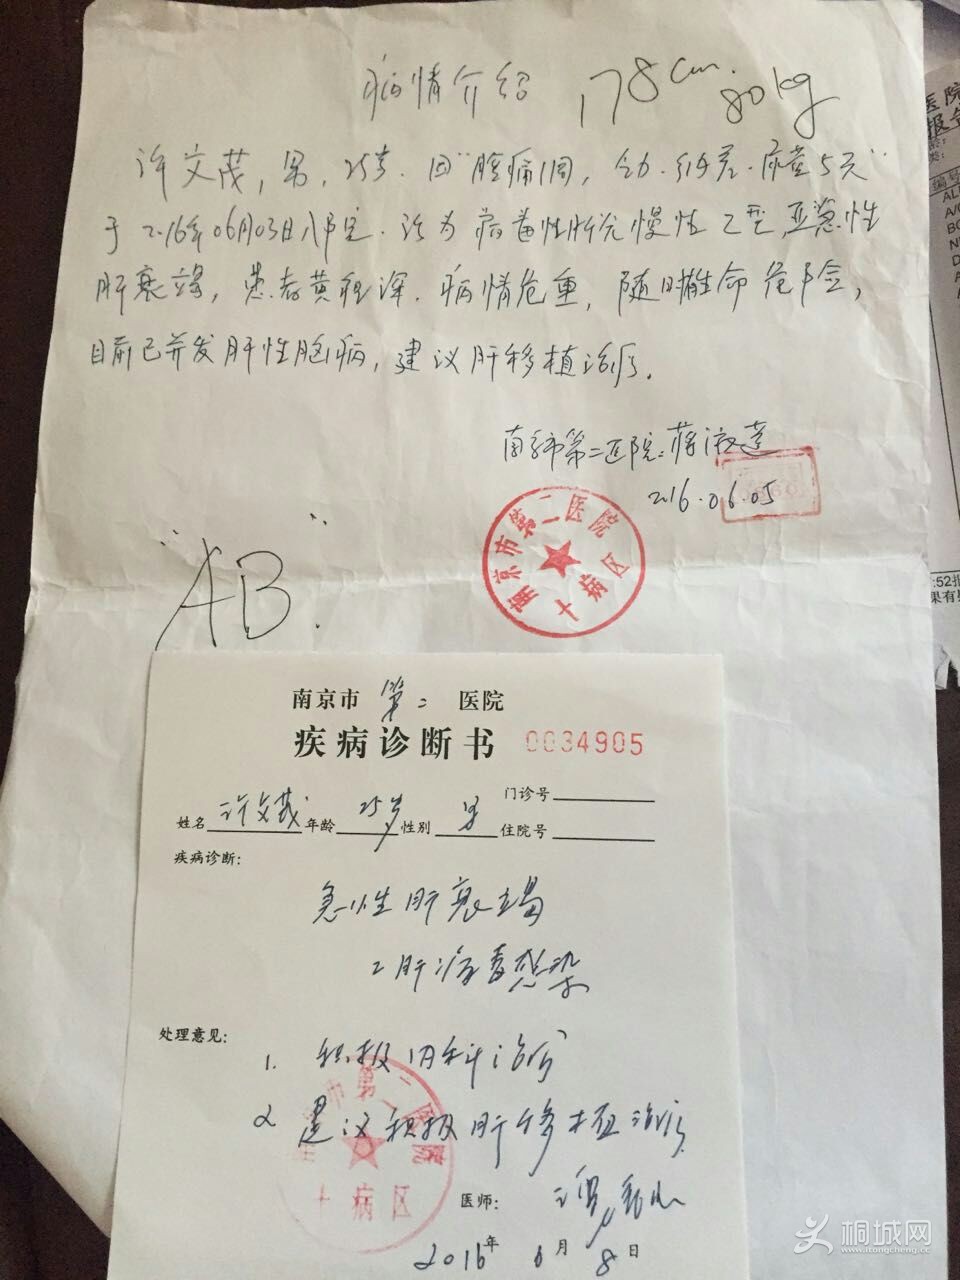 病情介绍 178cm. 80kg
许文茂,男,25岁.因"腹痛1周,乏力.纳差.尿黄5天"
于2016年06月03日入院.诊为病毒性肝炎慢性乙型,亚急性
肝衰竭,患者黄疸深.病情危重,随时生命危险,
目前已并发肝性脑病,建议肝移植治疗.
南京市第二医院:蒋淑莲
2016.06.05
南京市第二医院
十病区
"AB".
南京市 第二 医院
疾病诊断书 0034905
门诊号
姓名 许文茂 年龄 25岁 性别 男 住院号
疾病诊断:
急性肝衰竭
乙肝病毒感染
处理意见:
1. 积极内科治疗
2 建议积极肝移植治疗
市第二医院
十病区
医师:
2016年 6月 8日
医院
报告
编号
AL
:52报
果有
桐城网
www.itongcheng.cc